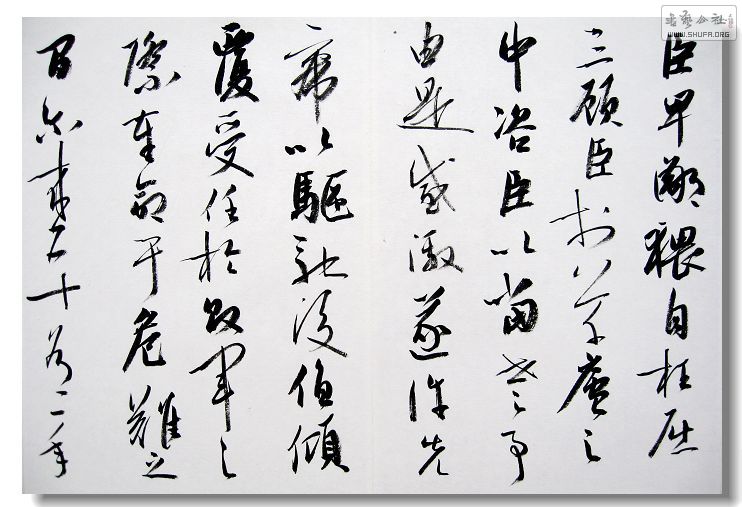 书艺公社
WWW.SHUFA.ORG
臣卑鄙猥自枉屈
三顾臣於草廬之
中咨臣以當世之事
由是感激遂許先
帝以驅馳後值傾
覆受任於敗軍之
際奉命於危難之
間尔来二十有一年